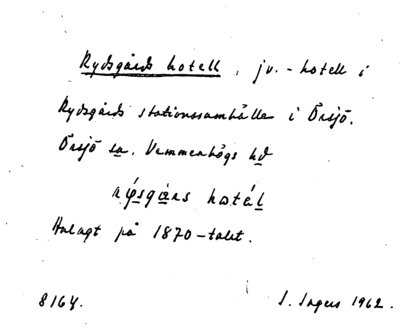 Rydsgårds hotell, jv.-hotell i
Rydsgårds stationssamhälle i Örsjö.
Örsjö sn. Vemmenhögs hd
hotäl
Anlagt på 1870-talet.
8164. I. Ingers 1962.